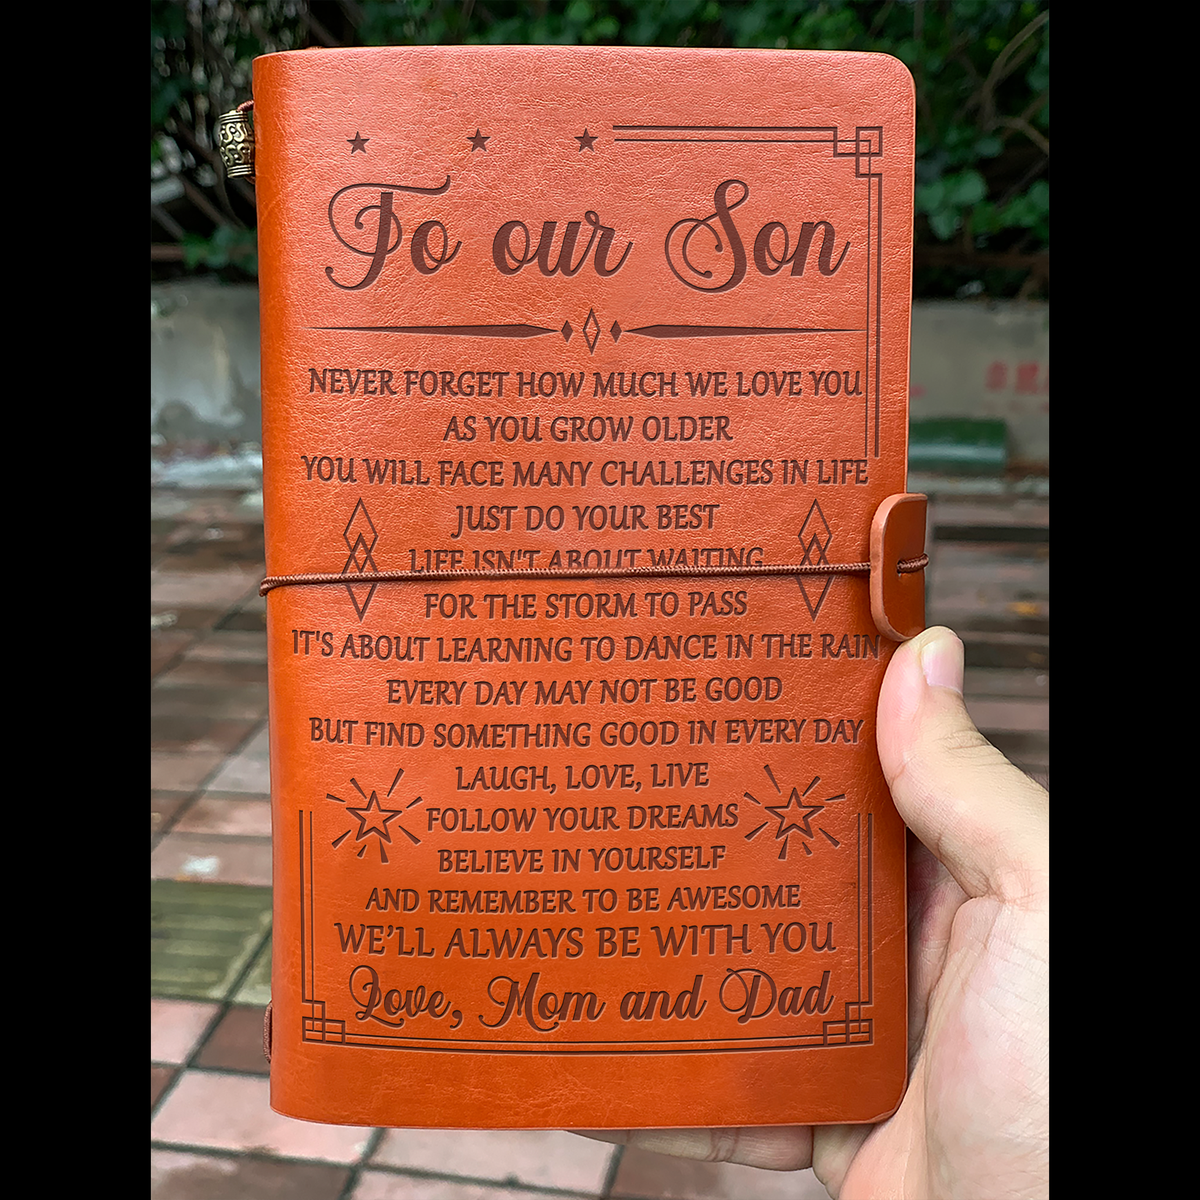 To our Son
NEVER FORGET HOW MUCH WE LOVE YOU
AS YOU GROW OLDER
YOU WILL FACE MANY CHALLENGES IN LIFE
JUST DO YOUR BEST
LIFE ISN'T ABOUT WAITING
FOR THE STORM TO PASS
IT'S ABOUT LEARNING TO DANCE IN THE RAIN
EVERY DAY MAY NOT BE GOOD
BUT FIND SOMETHING GOOD IN EVERY DAY
LAUGH, LOVE, LIVE
FOLLOW YOUR DREAMS
BELIEVE IN YOURSELF
AND REMEMBER TO BE AWESOME
WE'LL ALWAYS BE WITH YOU
Love, Mom and Dad